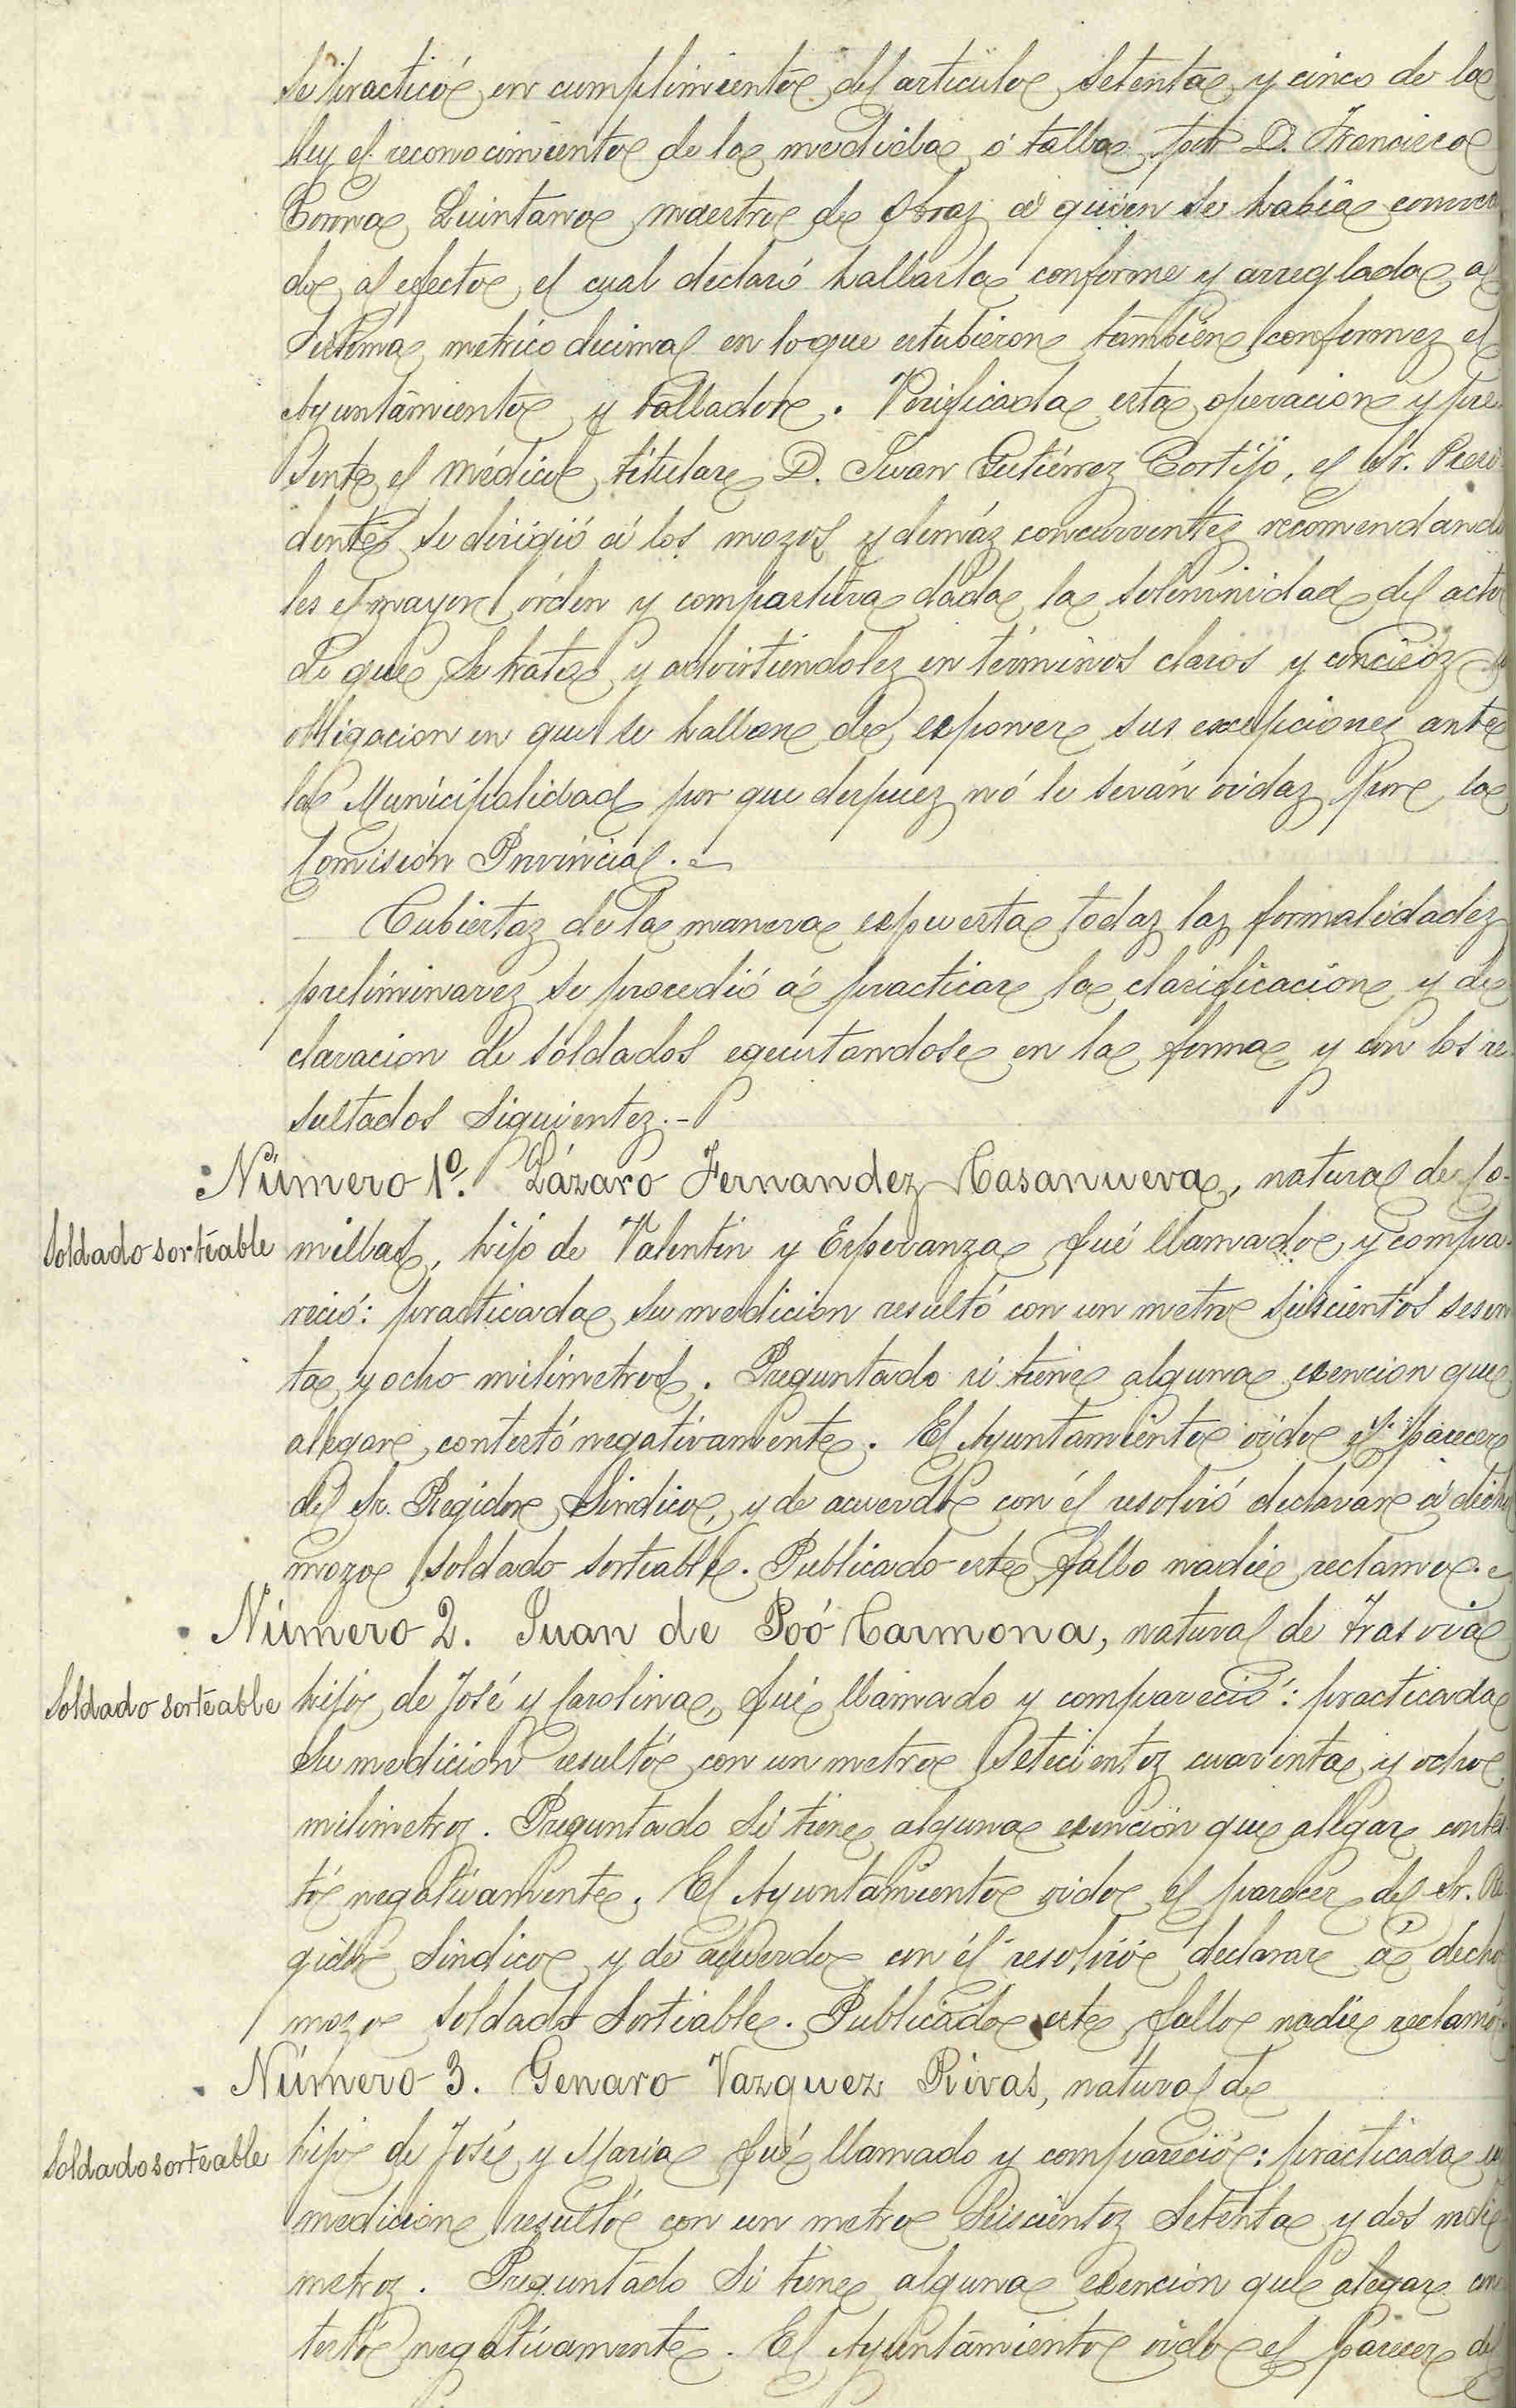 se practicó en cumplimiento del articulo setenta y cinco de la
ley el reconocimiento de la medida ó talla por D. Francisco
Quintana maestro de obraz á quien se había convoca
do al efecto, el cual declaró hallarla conforme y arreglada al
sistéma metrico decimal en lo que estubieron también conformez el
Ayuntamiento y tallador. Verificada esta operacion y pre
sente el médico titular D. Juan Gutiérrez Cortijo, el Sr. Presi
dente se dirigió á los mozos y demáz concurrentez recomendando
les el mayor órden y compostura dada la solemnidad del acto
de que se trata y advirtiéndolez en términos claros y concisoz la
obligacion en que se hallan de exponer sus excepcionez ante
la Municipalidad por que despuez nó le serán oidaz por la
Comisión Provincial.
Cubiertaz de la manera expuesta todaz laz formalidadez
preliminarez se procedió á practicar la clasificacion y de
claracion de soldados egecutandose en la forma y con los re
sultados siguientez.-
Número 1º. Lázaro Fernandez Casanueva, natural de Co-
Soldado sorteable
millas, hijo de Valentín y Esperanza fué llamado y compa-
reció: practicada su medicion resultó con un metro seiscientos sesen
ta y ocho milímetros. Preguntado si tiene alguna exencion que
alegar, contestó negatívamente. El Ayuntamiento oído el parecer
del Sr. Regidor Síndico, y de acuerdo con él resolvió declarar á dicho
mozo soldado sorteable. Publicado este fallo nadie reclamo.
Número 2. Juan de Poó Carmona, natural de Trasvia
Soldado sorteable
hijo de José y Carolina, fué llamado y compareció: practicada
su medición resultó con un metro setecientoz cuarenta y ocho
milimetroz. Preguntado si tiene alguna exención que alegar contes
tó negatívamente. El Ayuntamiento oido el parecer del Sr. Re
gidor Síndico y de acuerdo con él resolvió declarar á decho
mozo soldado sorteable. Publicado este fallo nadie reclamó.
Número 3. Genaro Vazquez Rivas, natural de
Soldado sorteable
hijo de José y María fué llamado y compareció: practicada su
medicion resultó con un metro seiscientoz setenta y dos milí
metroz. Preguntado si tiene alguna exención que alegar con
testó negatívamente. El Ayuntamiento oido el parecer del